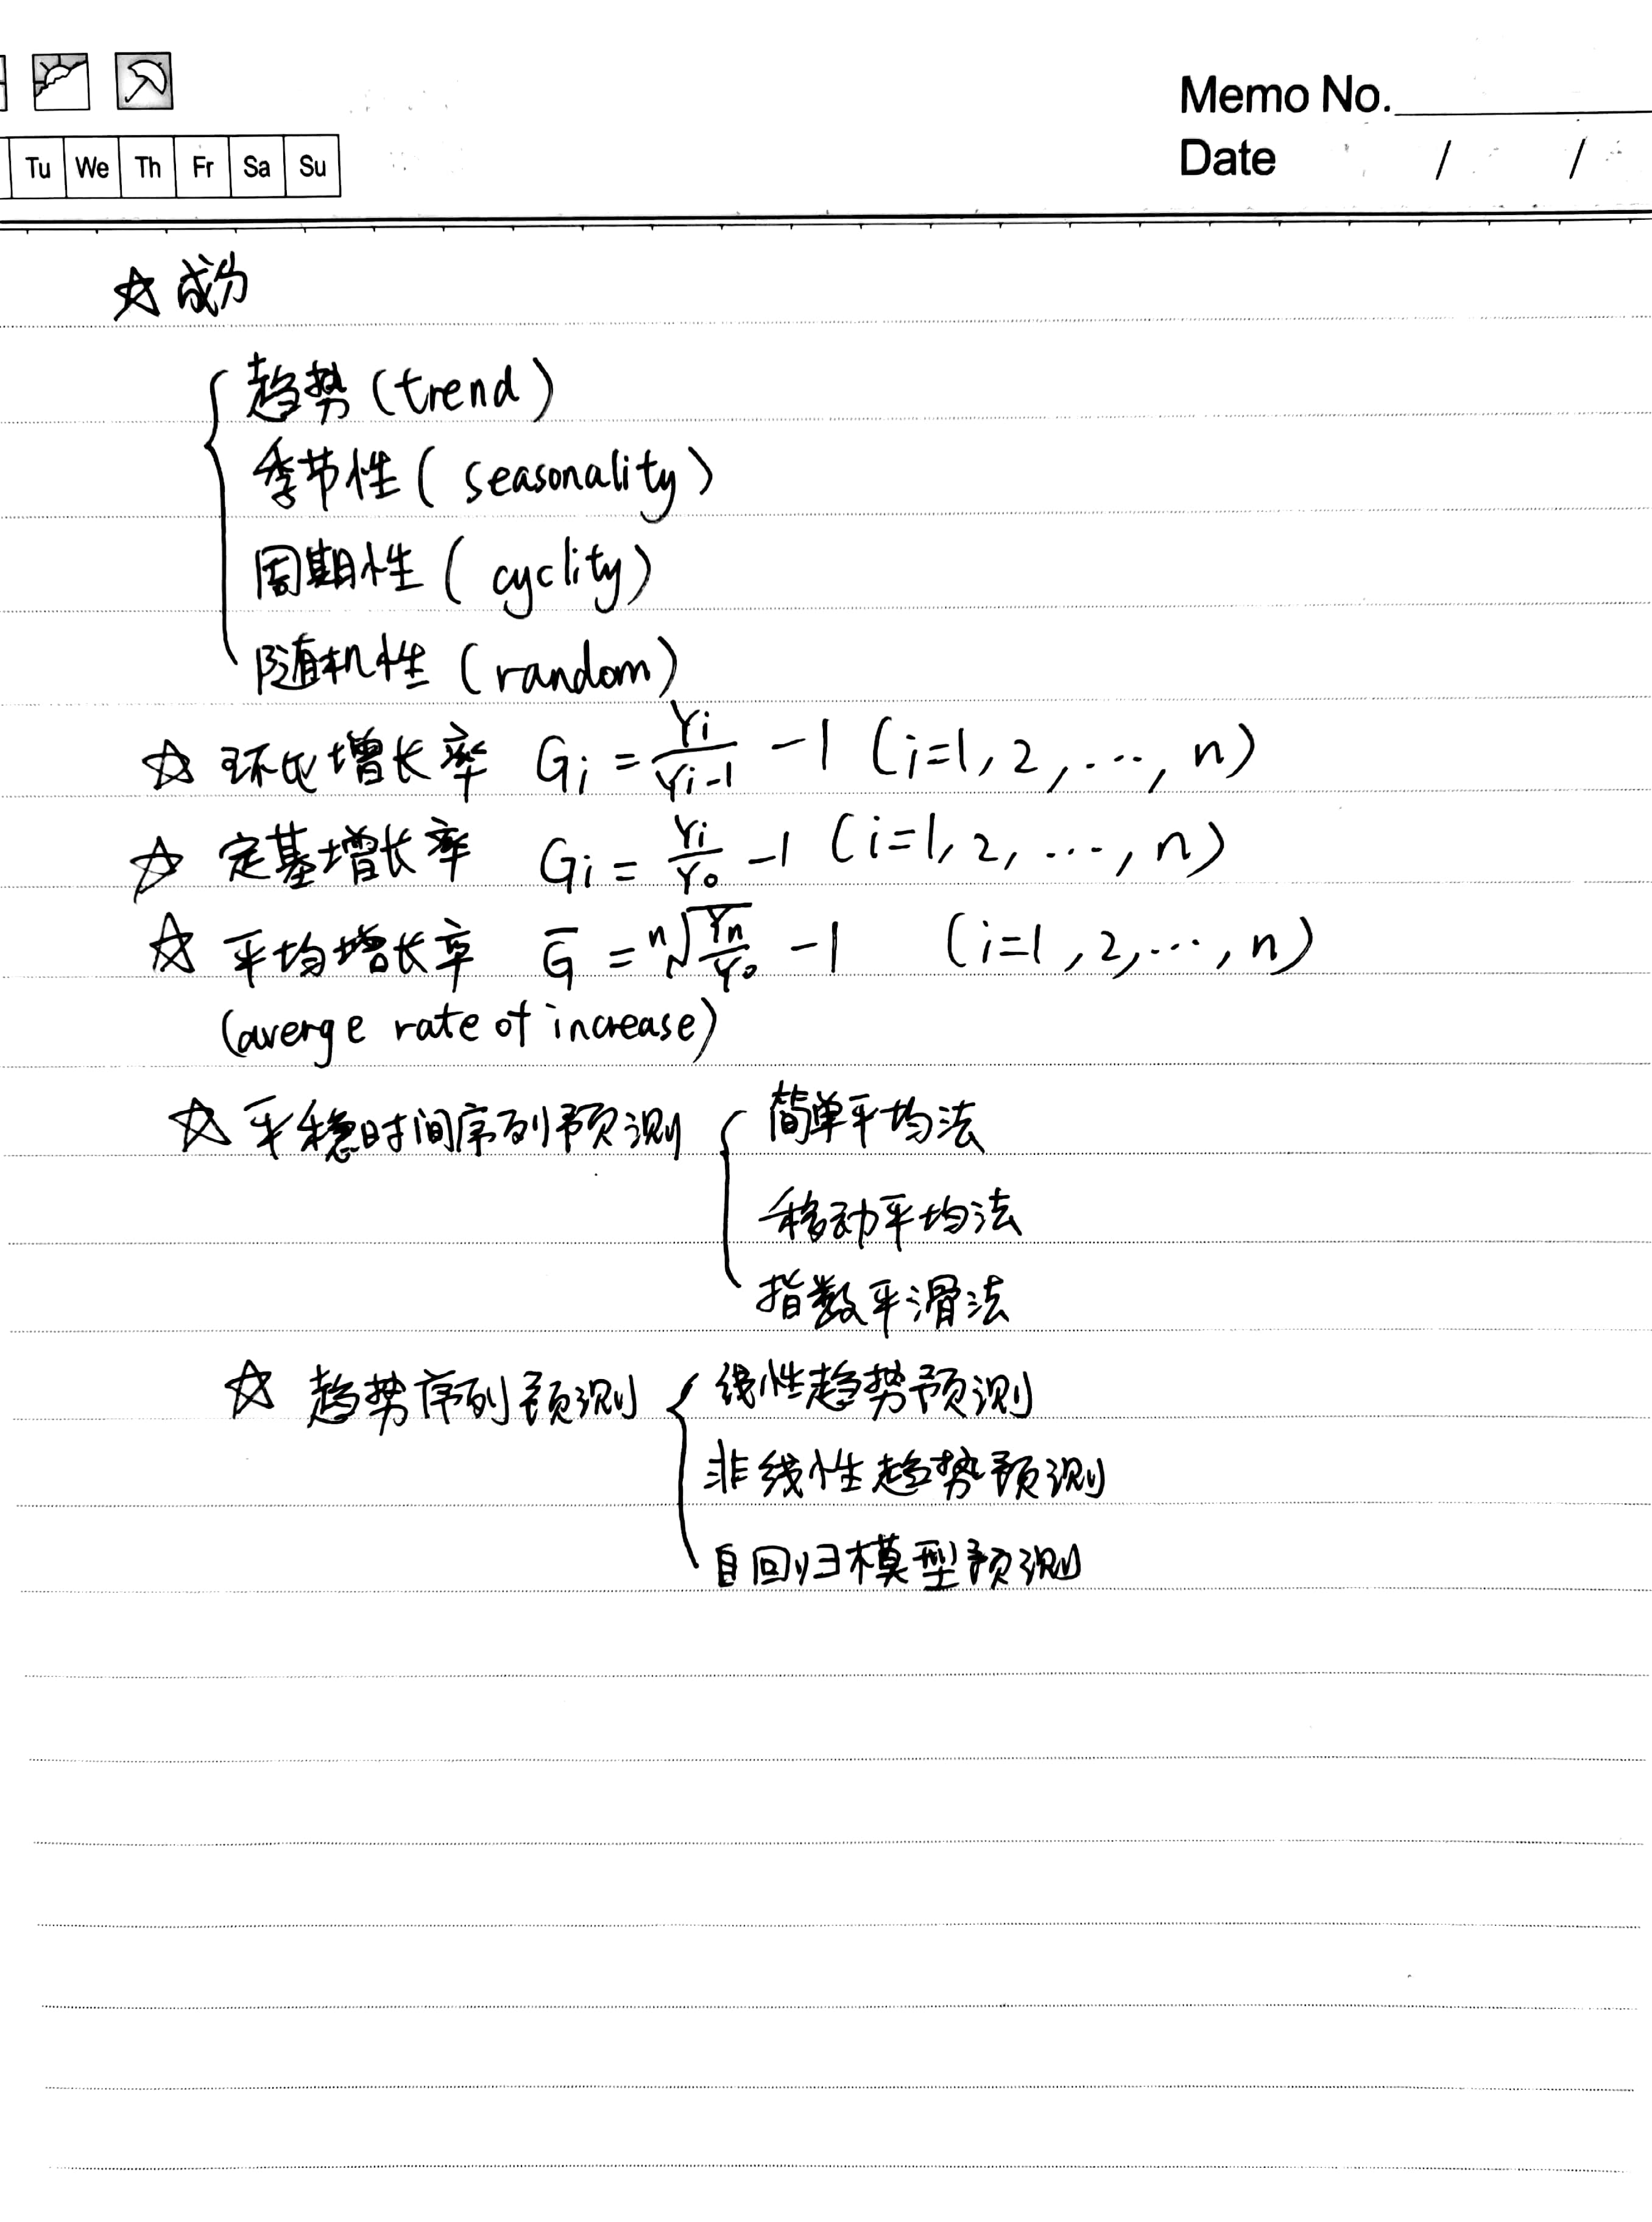 Memo No.
Tu We Th Fr Sa Su
Date / /
☆ 成分
趋势 (trend)
季节性 (seasonality)
周期性 (cyclity)
随机性 (random)
☆ 环比增长率 Gi = Yi/Yi-1 - 1 (i=1, 2, ..., n)
☆ 定基增长率 Gi = Yi/Y0 - 1 (i=1, 2, ..., n)
☆ 平均增长率 G̅ = ⁿ√(Yn/Y0) - 1 (i=1, 2, ..., n)
(averge rate of increase)
☆ 平稳时间序列预测 { 简单平均法
移动平均法
指数平滑法
☆ 趋势序列预测 { 线性趋势预测
非线性趋势预测
自回归模型预测